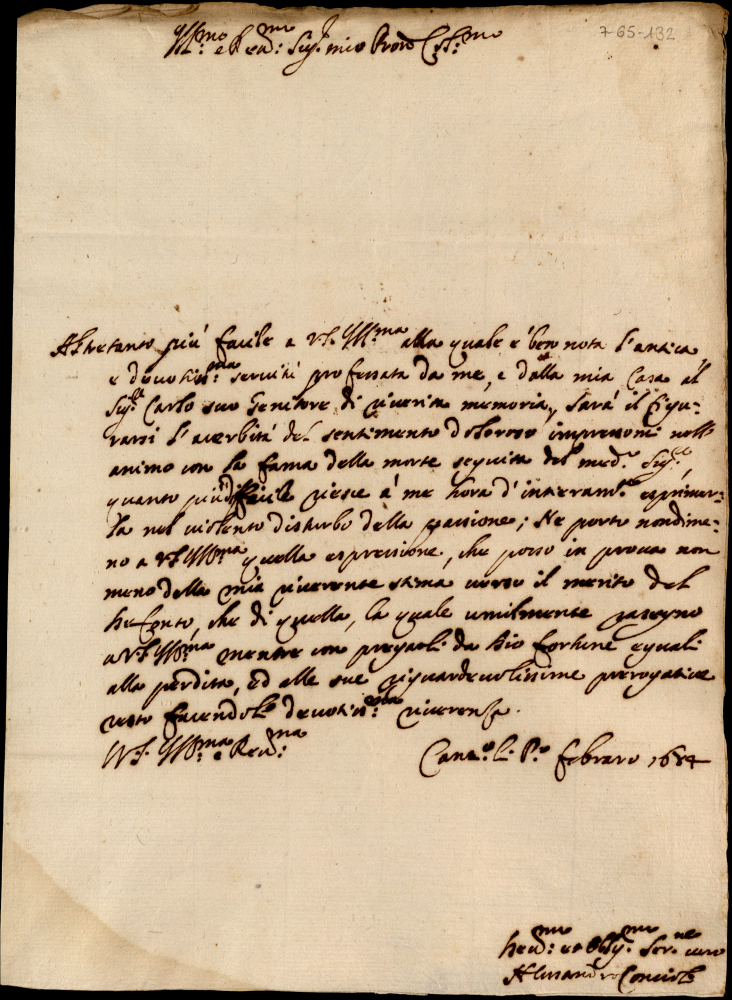 Ill:mo e Reu:mo Sig:r mio Pron Col:mo
7-65-132
Altretanto più facile a VS. Ill:ma alla quale è ben nota l'antica
e deuotiss:ma seruitù professata da me, e dalla mia Casa al
Sig:r Carlo suo Genitore di riuerita memoria, sarà il figu-
rarsi l'acerbità del sentimento doloroso impressomi nell
animo con la fama della morte seguita del med:o Sig:re,
quanto più difficile riesce à me hora d'interam:te esprimer-
la nel uiolento disturbo della passione; Ne porto nondime-
no a VS Ill:ma quella espressione, che posso in proua non
meno della mia riuerente stima uerso il merito del
che di quella, la quale umilmente rassegno
a VS Ill:ma mentre con pregarli da Dio fortune eguali
alla perdita, ed alle sue riguardeuolissime prerogatiue
resto facendole deuotiss:ma riuerenza.
Di VS. Ill:ma e Reu:ma
li P:o Febraro 1684
et Oblig:mo Ser:re uero
Alessandro